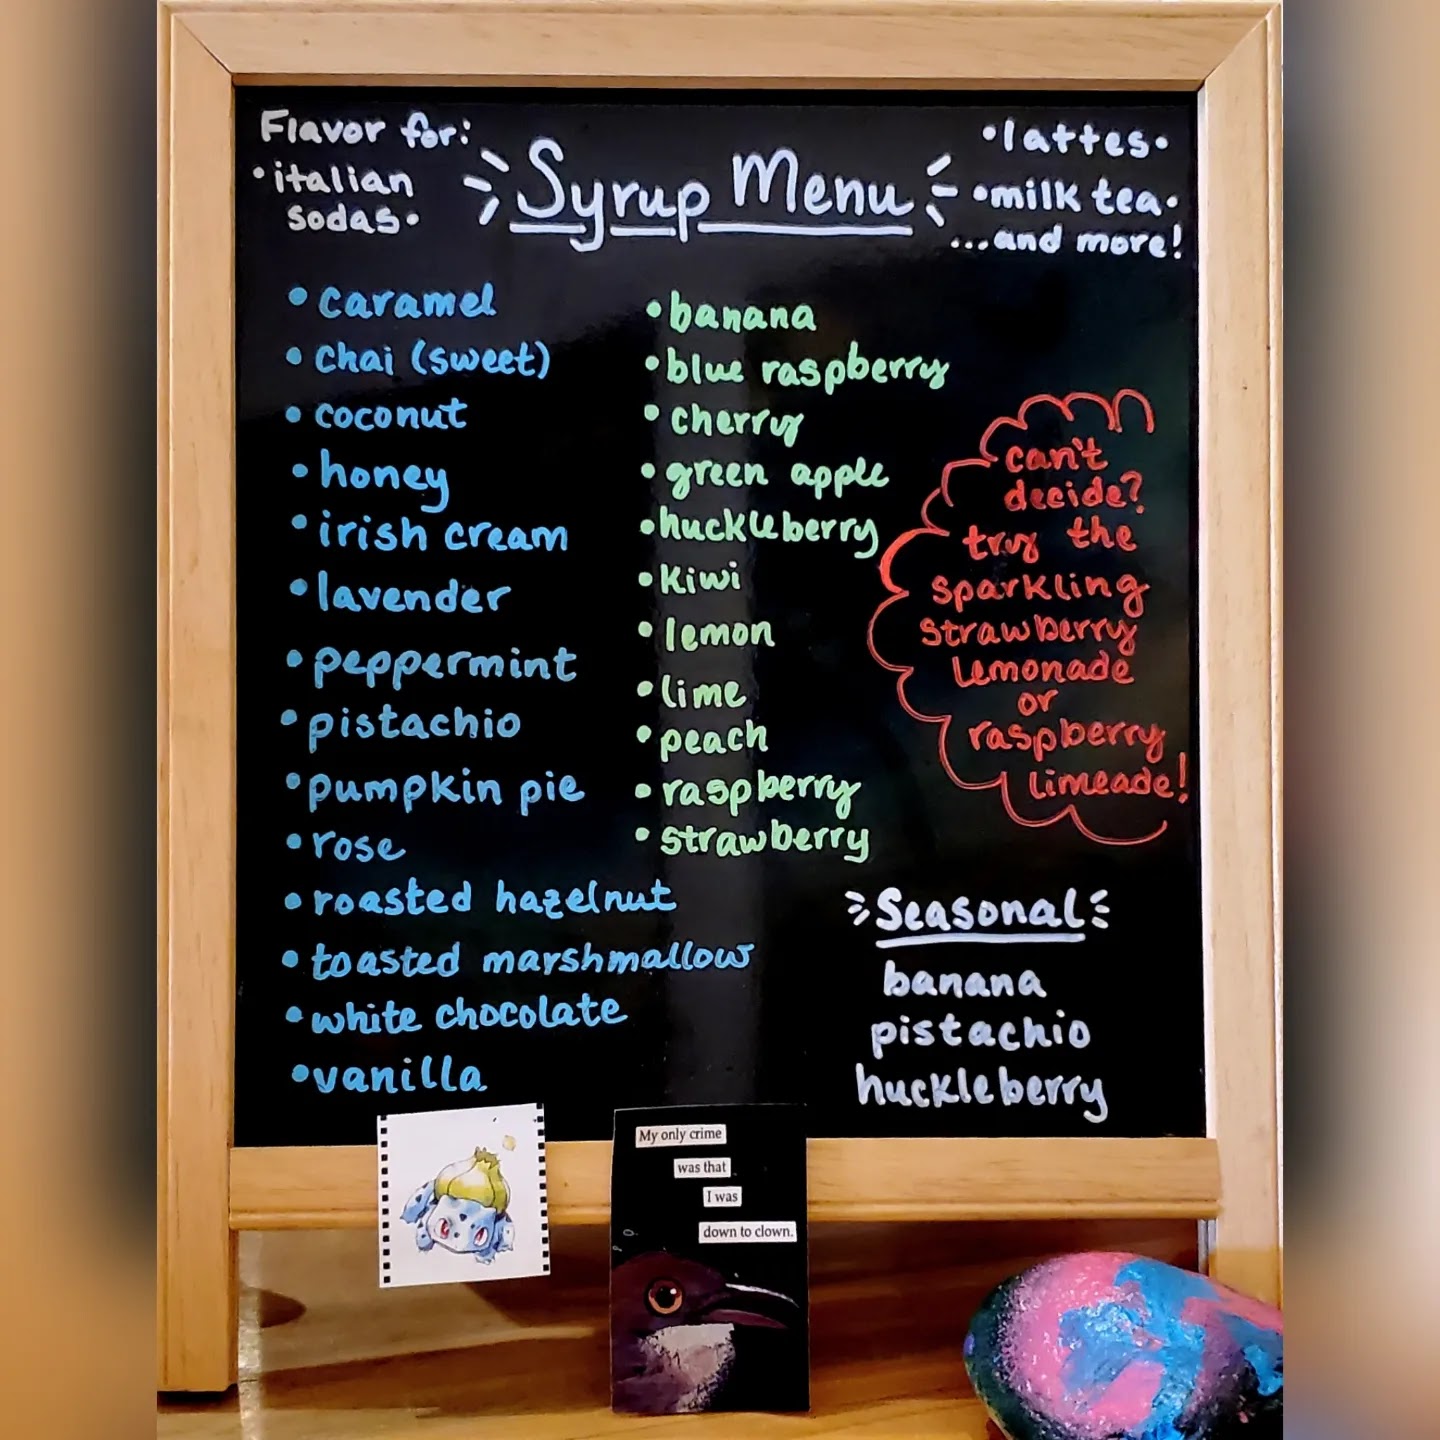 Flavor for:
• italian
sodas •
Syrup Menu
• lattes •
• milk tea •
...and more!
• caramel
• chai (sweet)
• coconut
• honey
• irish cream
• lavender
• peppermint
• pistachio
• pumpkin pie
• rose
• roasted hazelnut
• toasted marshmallow
• white chocolate
• vanilla
• banana
• blue raspberry
• cherry
• green apple
• huckleberry
• kiwi
• lemon
• lime
• peach
• raspberry
• strawberry
can't
decide?
try the
sparkling
strawberry
lemonade
or
raspberry
limeade!
Seasonal
banana
pistachio
huckleberry
My only crime
was that
I was
down to clown.